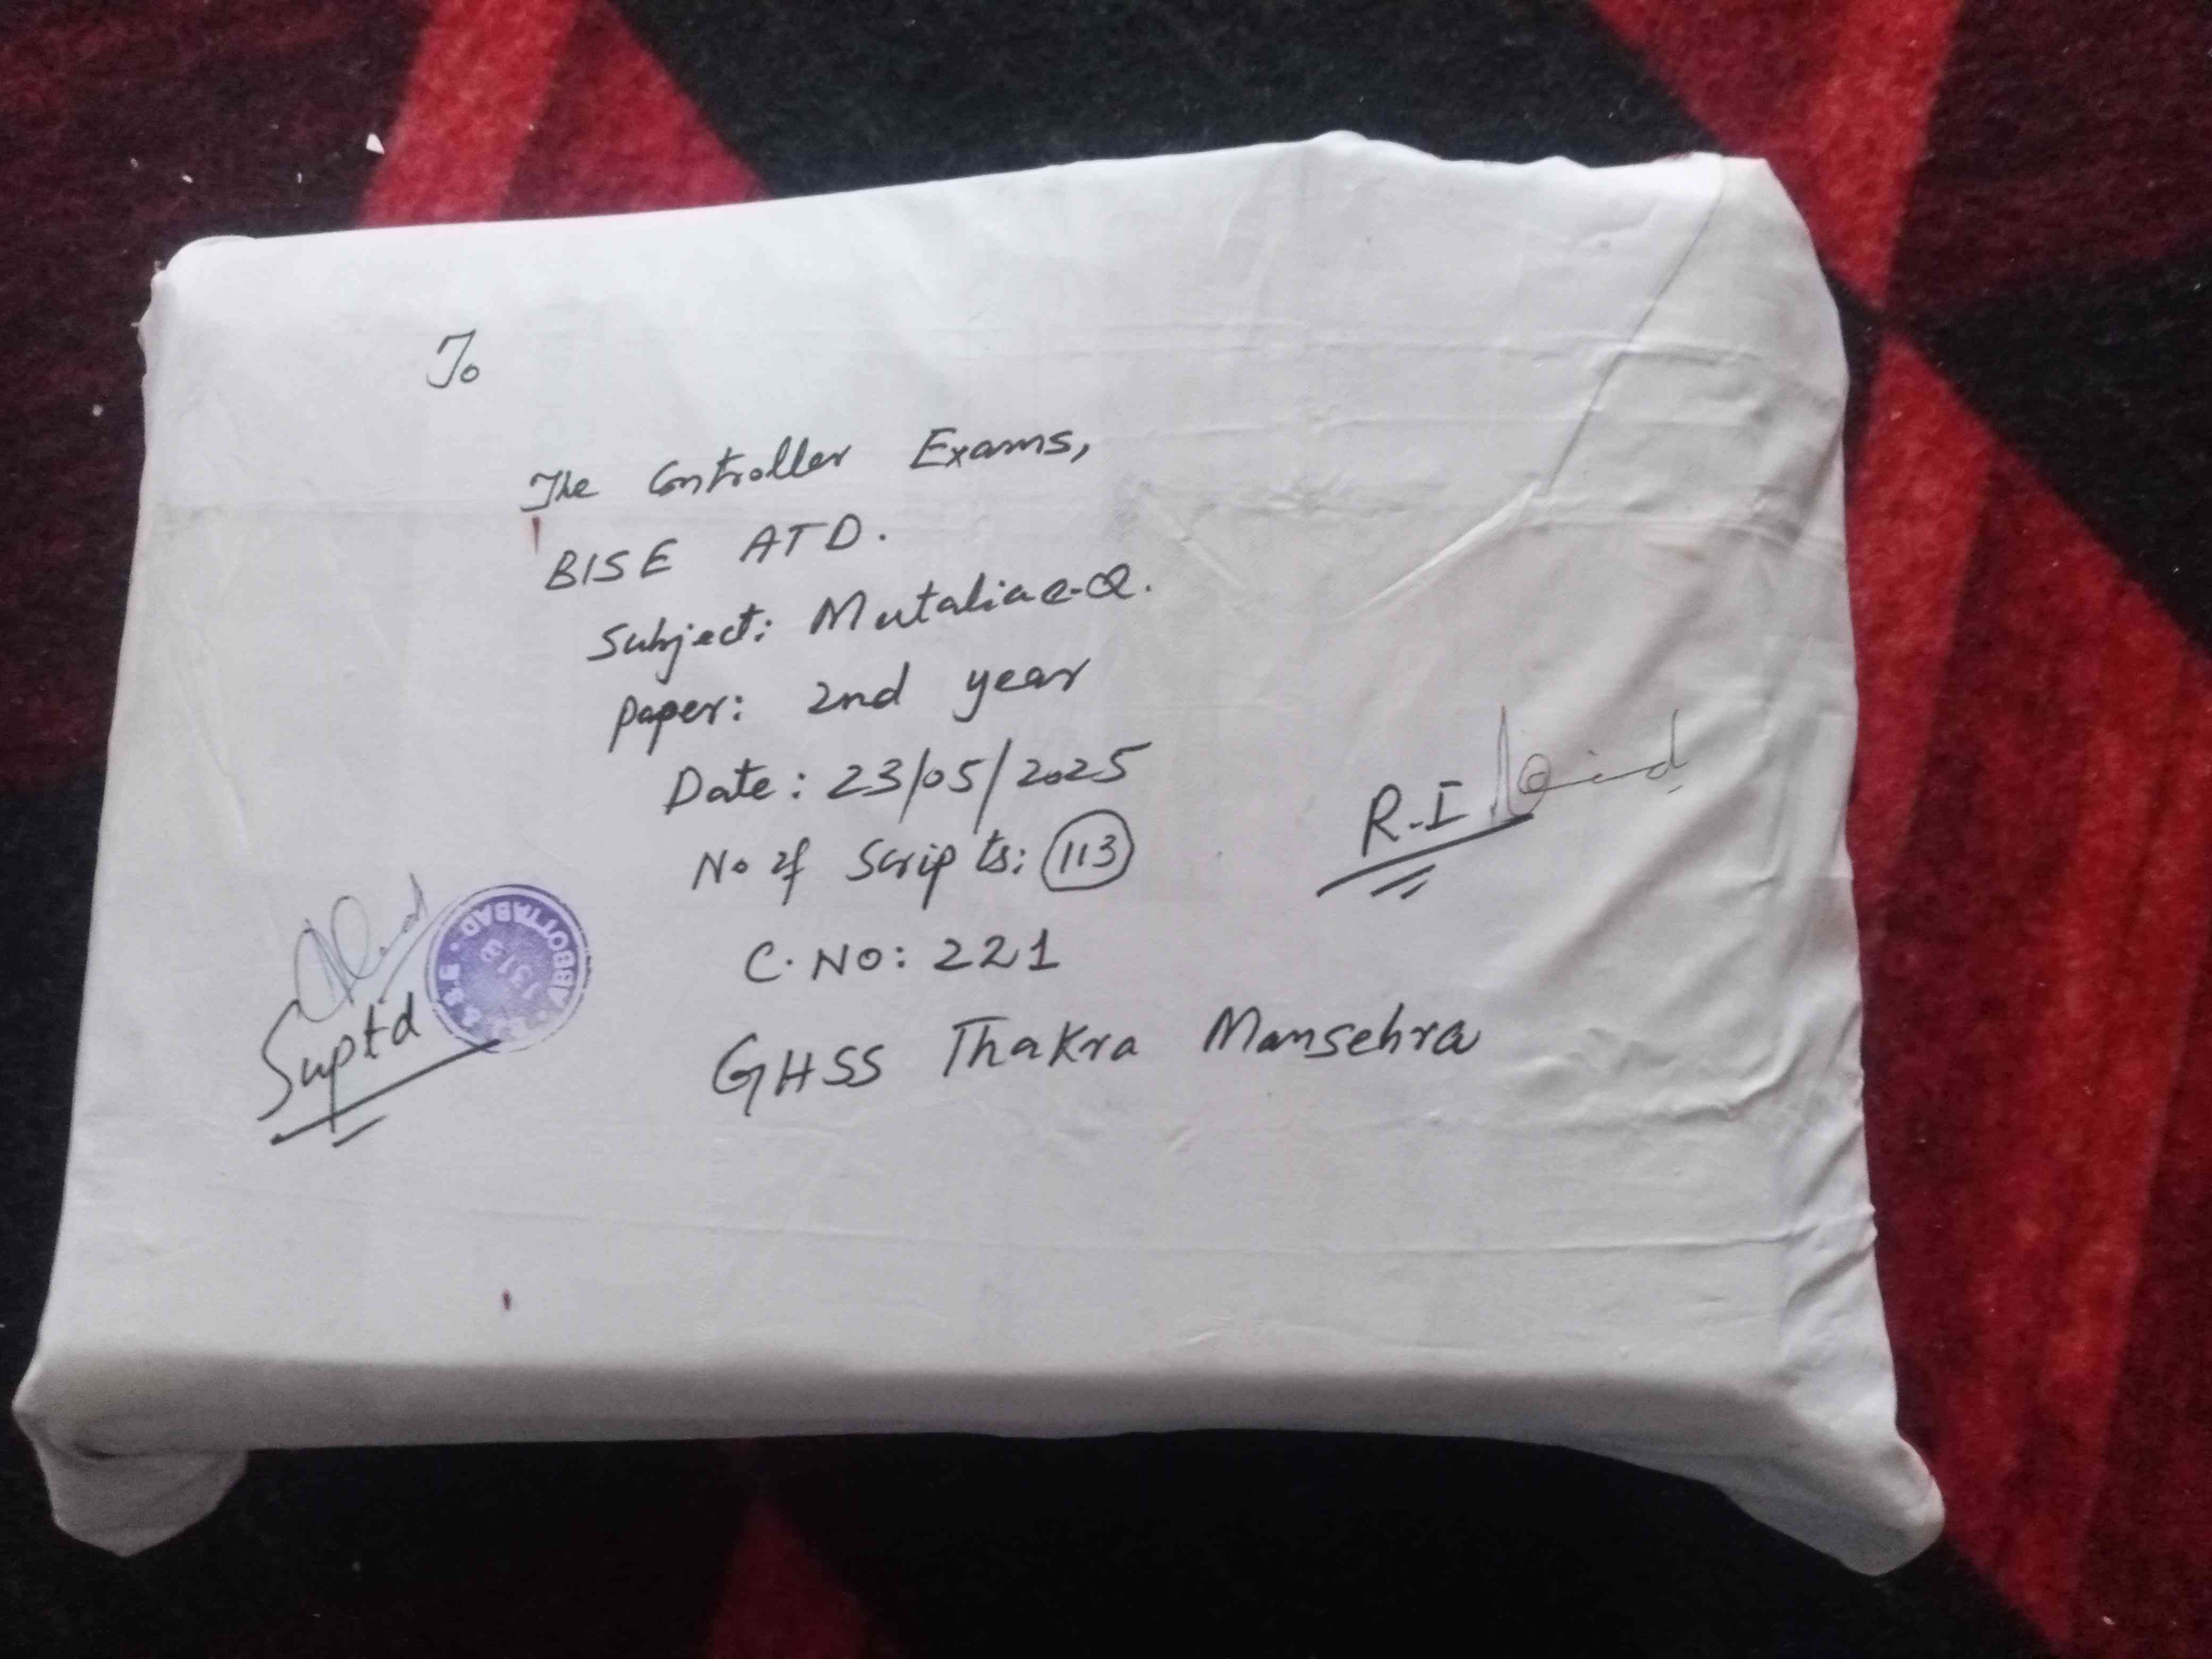 To
The Controller Exams,
BISE ATD.
Subject: Mutaliae-Q.
Paper: 2nd year
Date: 23/05/2025
No of Scripts: 113
C. NO: 221
GHSS Thakra Mansehra
R.I
Suptd
ABBOTTABAD